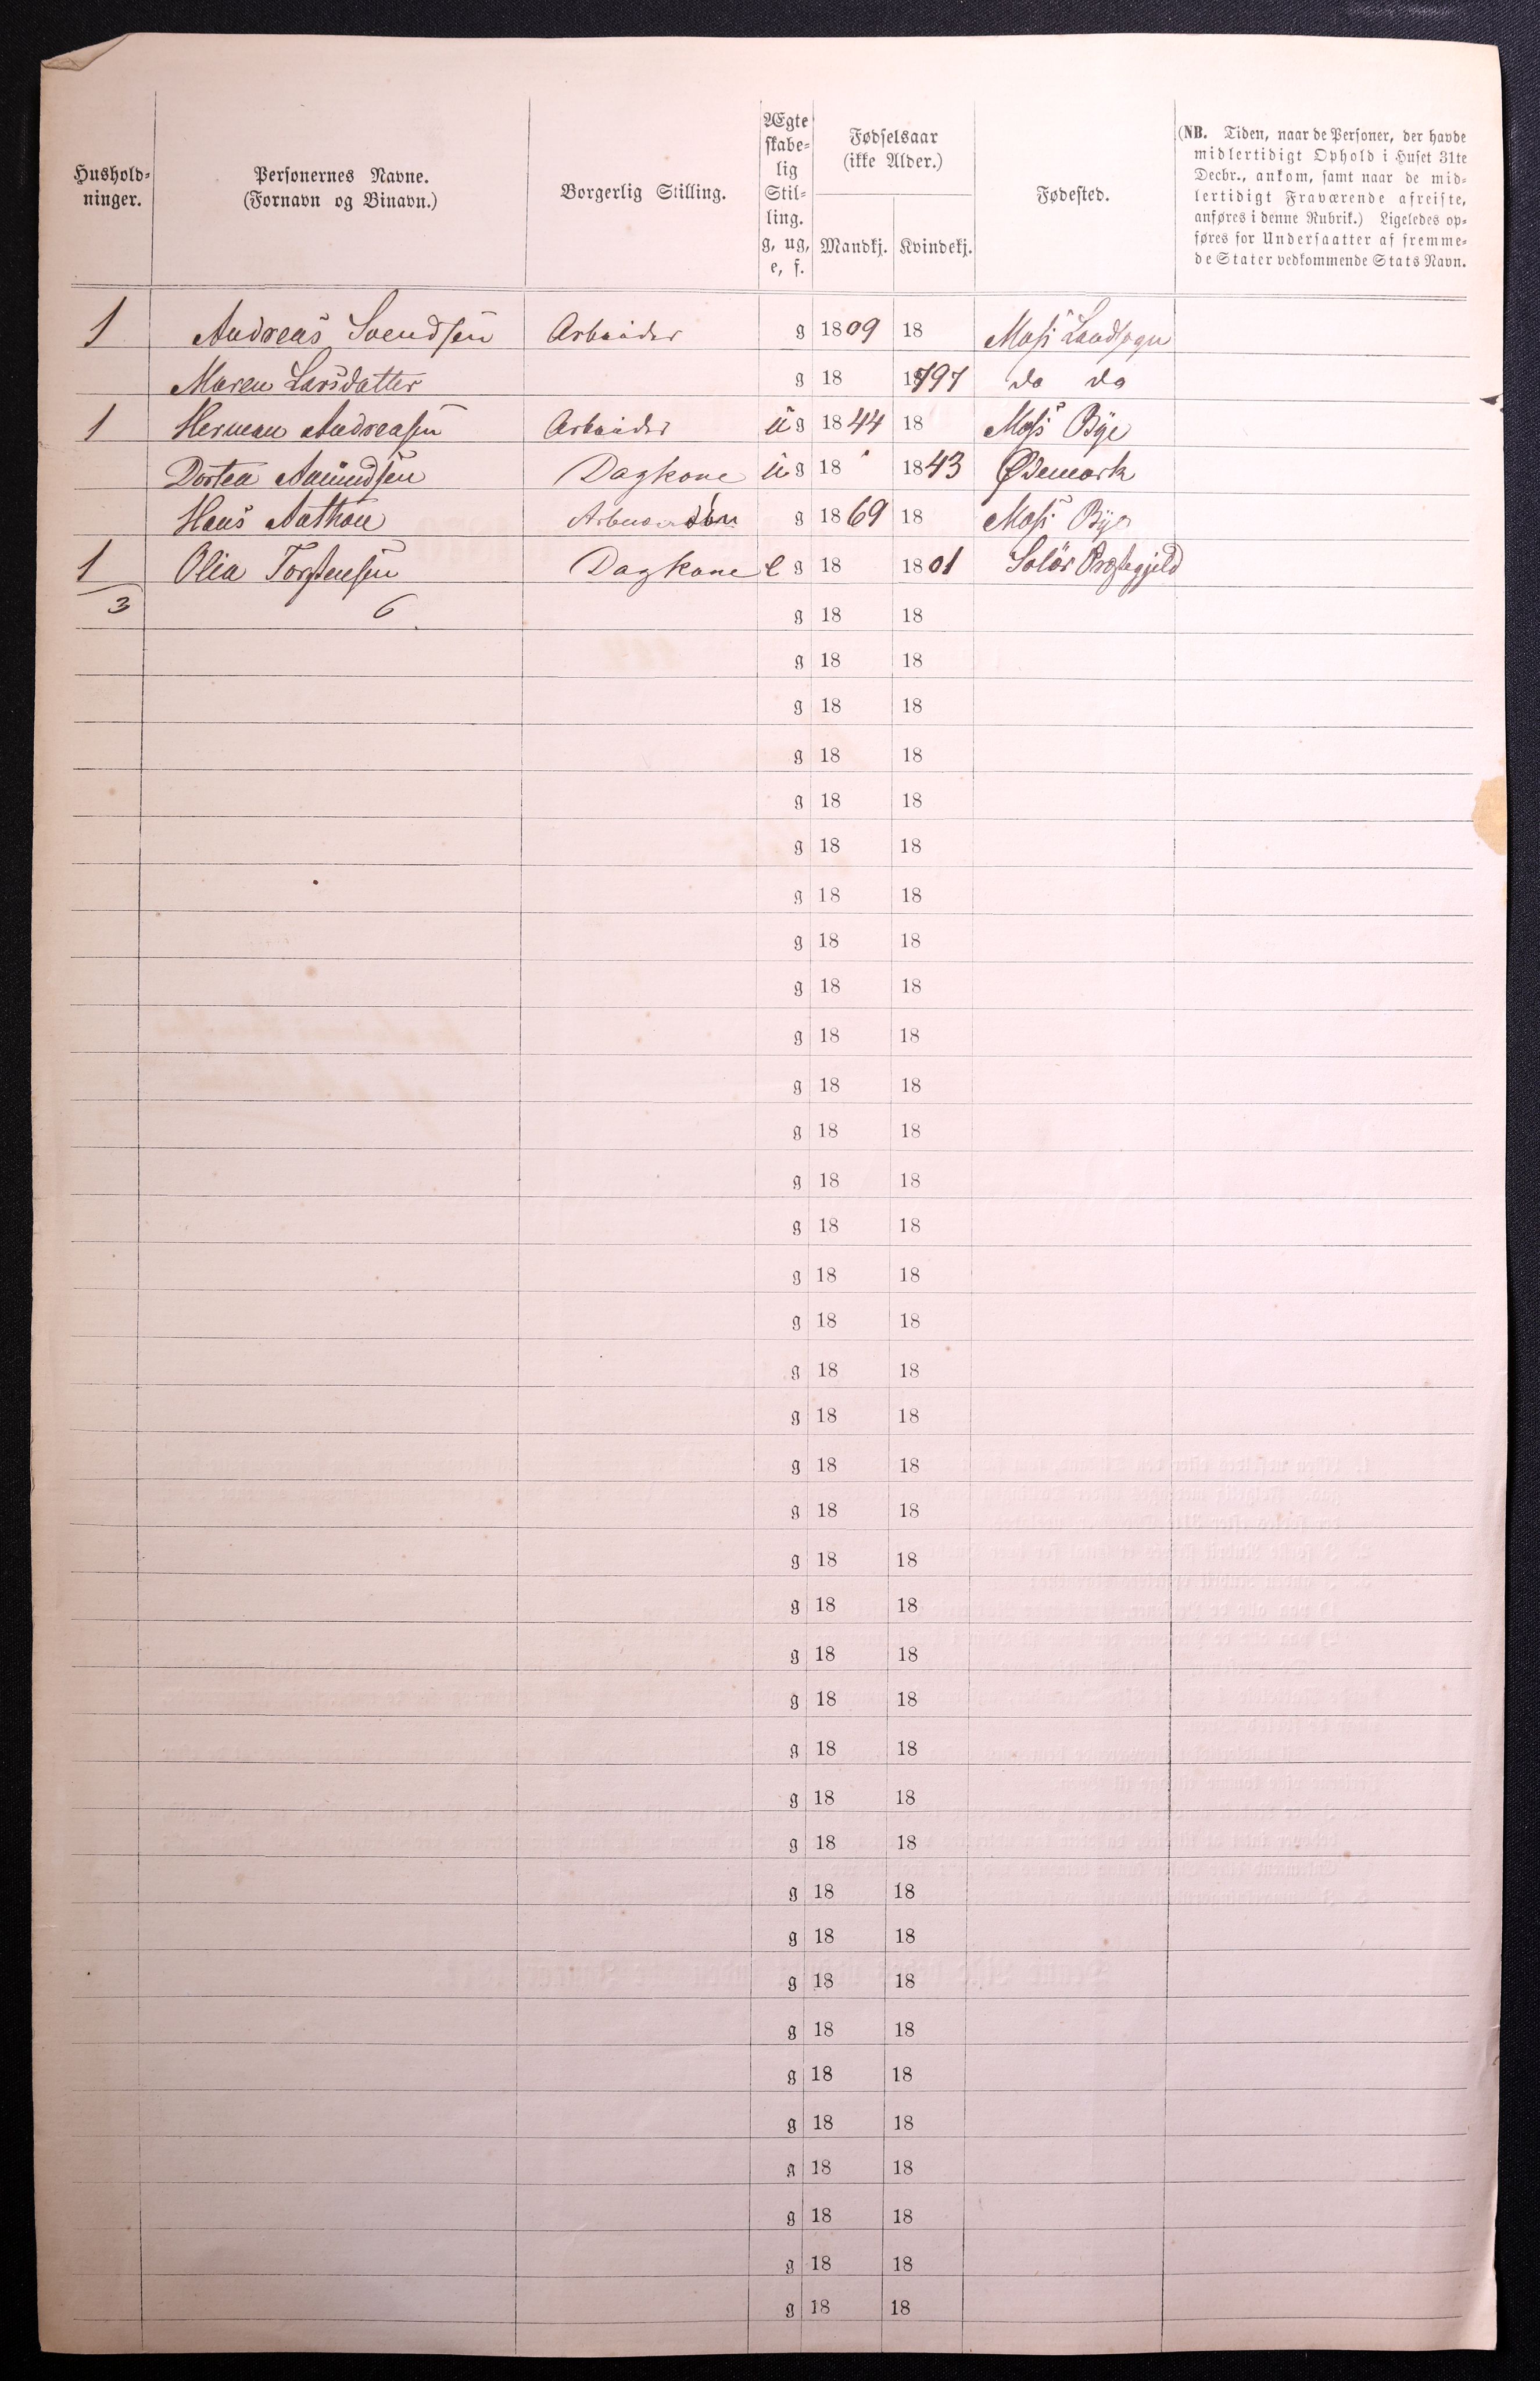 Hushold-
ninger.
Personernes Navne.
(Fornavn og Binavn.)
Borgerlig Stilling.
Ægte
skabe-
lig
Stil-
ling.
g, ug,
e, f.
Fødselsaar
(ikke Alder.)
Mandkj. Kvindekj.
Fødested.
(NB. Tiden, naar de Personer, der havde
midlertidigt Ophold i Huset 31te
Decbr., ankom, samt naar de mid-
lertidigt Fraværende afreiste,
anføres i denne Rubrik.) Ligeledes op-
føres for Undersaatter af fremme-
de Stater vedkommende Stats Navn.
1 Andreas Svendsen Arbeider g 1809 18 Moss Landsogn
Maren Larsdatter g 18 1797 do do
1 Herman Andreasen Arbeider ug 1844 18 Moss Bye
Dortea Amundsen Dagkone ug 18 1843 Ødemark
Hans Anthon søn g 1869 18 Moss Bye
1 Olia Torstensen Dagkone e g 18 1801 Solør Præstegjeld
3 6 g 18 18
g 18 18
g 18 18
g 18 18
g 18 18
g 18 18
g 18 18
g 18 18
g 18 18
g 18 18
g 18 18
g 18 18
g 18 18
g 18 18
g 18 18
g 18 18
g 18 18
g 18 18
g 18 18
g 18 18
g 18 18
g 18 18
g 18 18
g 18 18
g 18 18
g 18 18
g 18 18
g 18 18
g 18 18
g 18 18
g 18 18
g 18 18
g 18 18
g 18 18
g 18 18
g 18 18